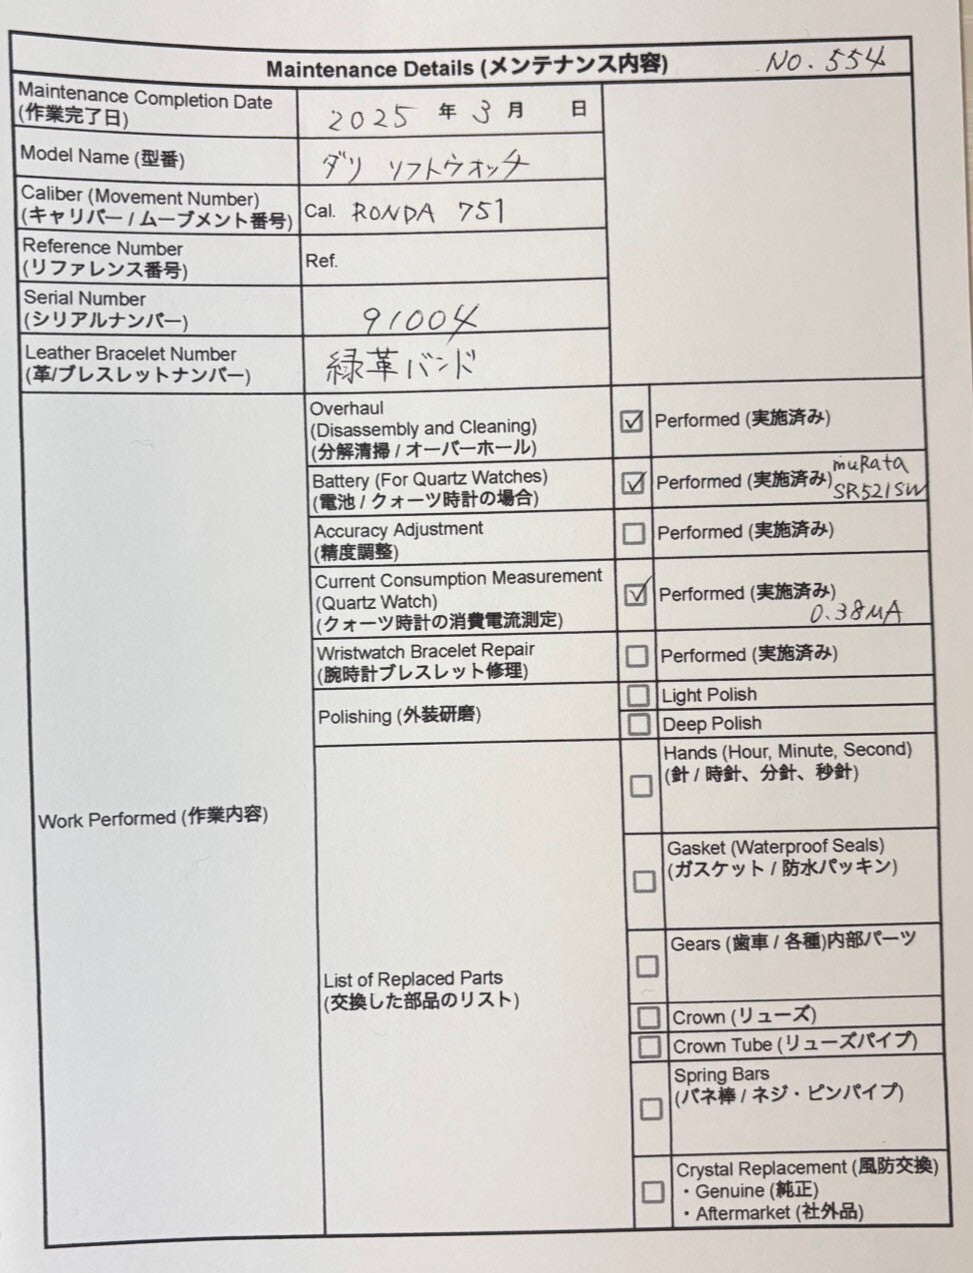 Maintenance Details (メンテナンス内容) NO. 554
Maintenance Completion Date
(作業完了日)
2025 年 3 月 日
Model Name (型番)
ダリ ソフトウオッチ
Caliber (Movement Number)
(キャリバー / ムーブメント番号)
Cal. RONDA 751
Reference Number
(リファレンス番号)
Ref.
Serial Number
(シリアルナンバー)
91004
Leather Bracelet Number
(革/ブレスレットナンバー)
緑革バンド
Work Performed (作業内容)
Overhaul
(Disassembly and Cleaning)
(分解清掃 / オーバーホール)
☑ Performed (実施済み)
Battery (For Quartz Watches)
(電池 / クォーツ時計の場合)
☑ Performed (実施済み) muRata
SR521SW
Accuracy Adjustment
(精度調整)
☐ Performed (実施済み)
Current Consumption Measurement
(Quartz Watch)
(クォーツ時計の消費電流測定)
☑ Performed (実施済み)
0.38μA
Wristwatch Bracelet Repair
(腕時計ブレスレット修理)
☐ Performed (実施済み)
Polishing (外装研磨)
☐ Light Polish
☐ Deep Polish
List of Replaced Parts
(交換した部品のリスト)
☐ Hands (Hour, Minute, Second)
(針 / 時針、分針、秒針)
☐ Gasket (Waterproof Seals)
(ガスケット / 防水パッキン)
☐ Gears (歯車 / 各種)内部パーツ
☐ Crown (リューズ)
☐ Crown Tube (リューズパイプ)
☐ Spring Bars
(バネ棒 / ネジ・ピンパイプ)
☐ Crystal Replacement (風防交換)
・Genuine (純正)
・Aftermarket (社外品)